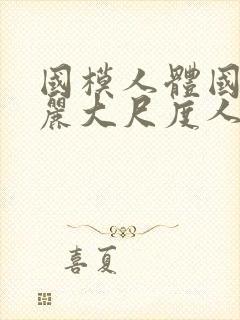 國模人體國
麗大尺度人
喜夏